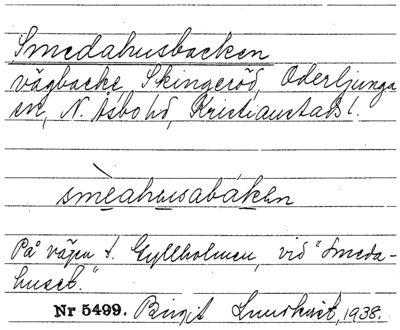 Smedahusbacken
vägbacke, Skingeröd, Oderljunga
sn, N. Åsbo hd, Kristianstads l.
smèahusabákẹn
På vägen t. Gyllholmen, vid "Smeda-
huset."
Nr 5499. Birgit 1938.